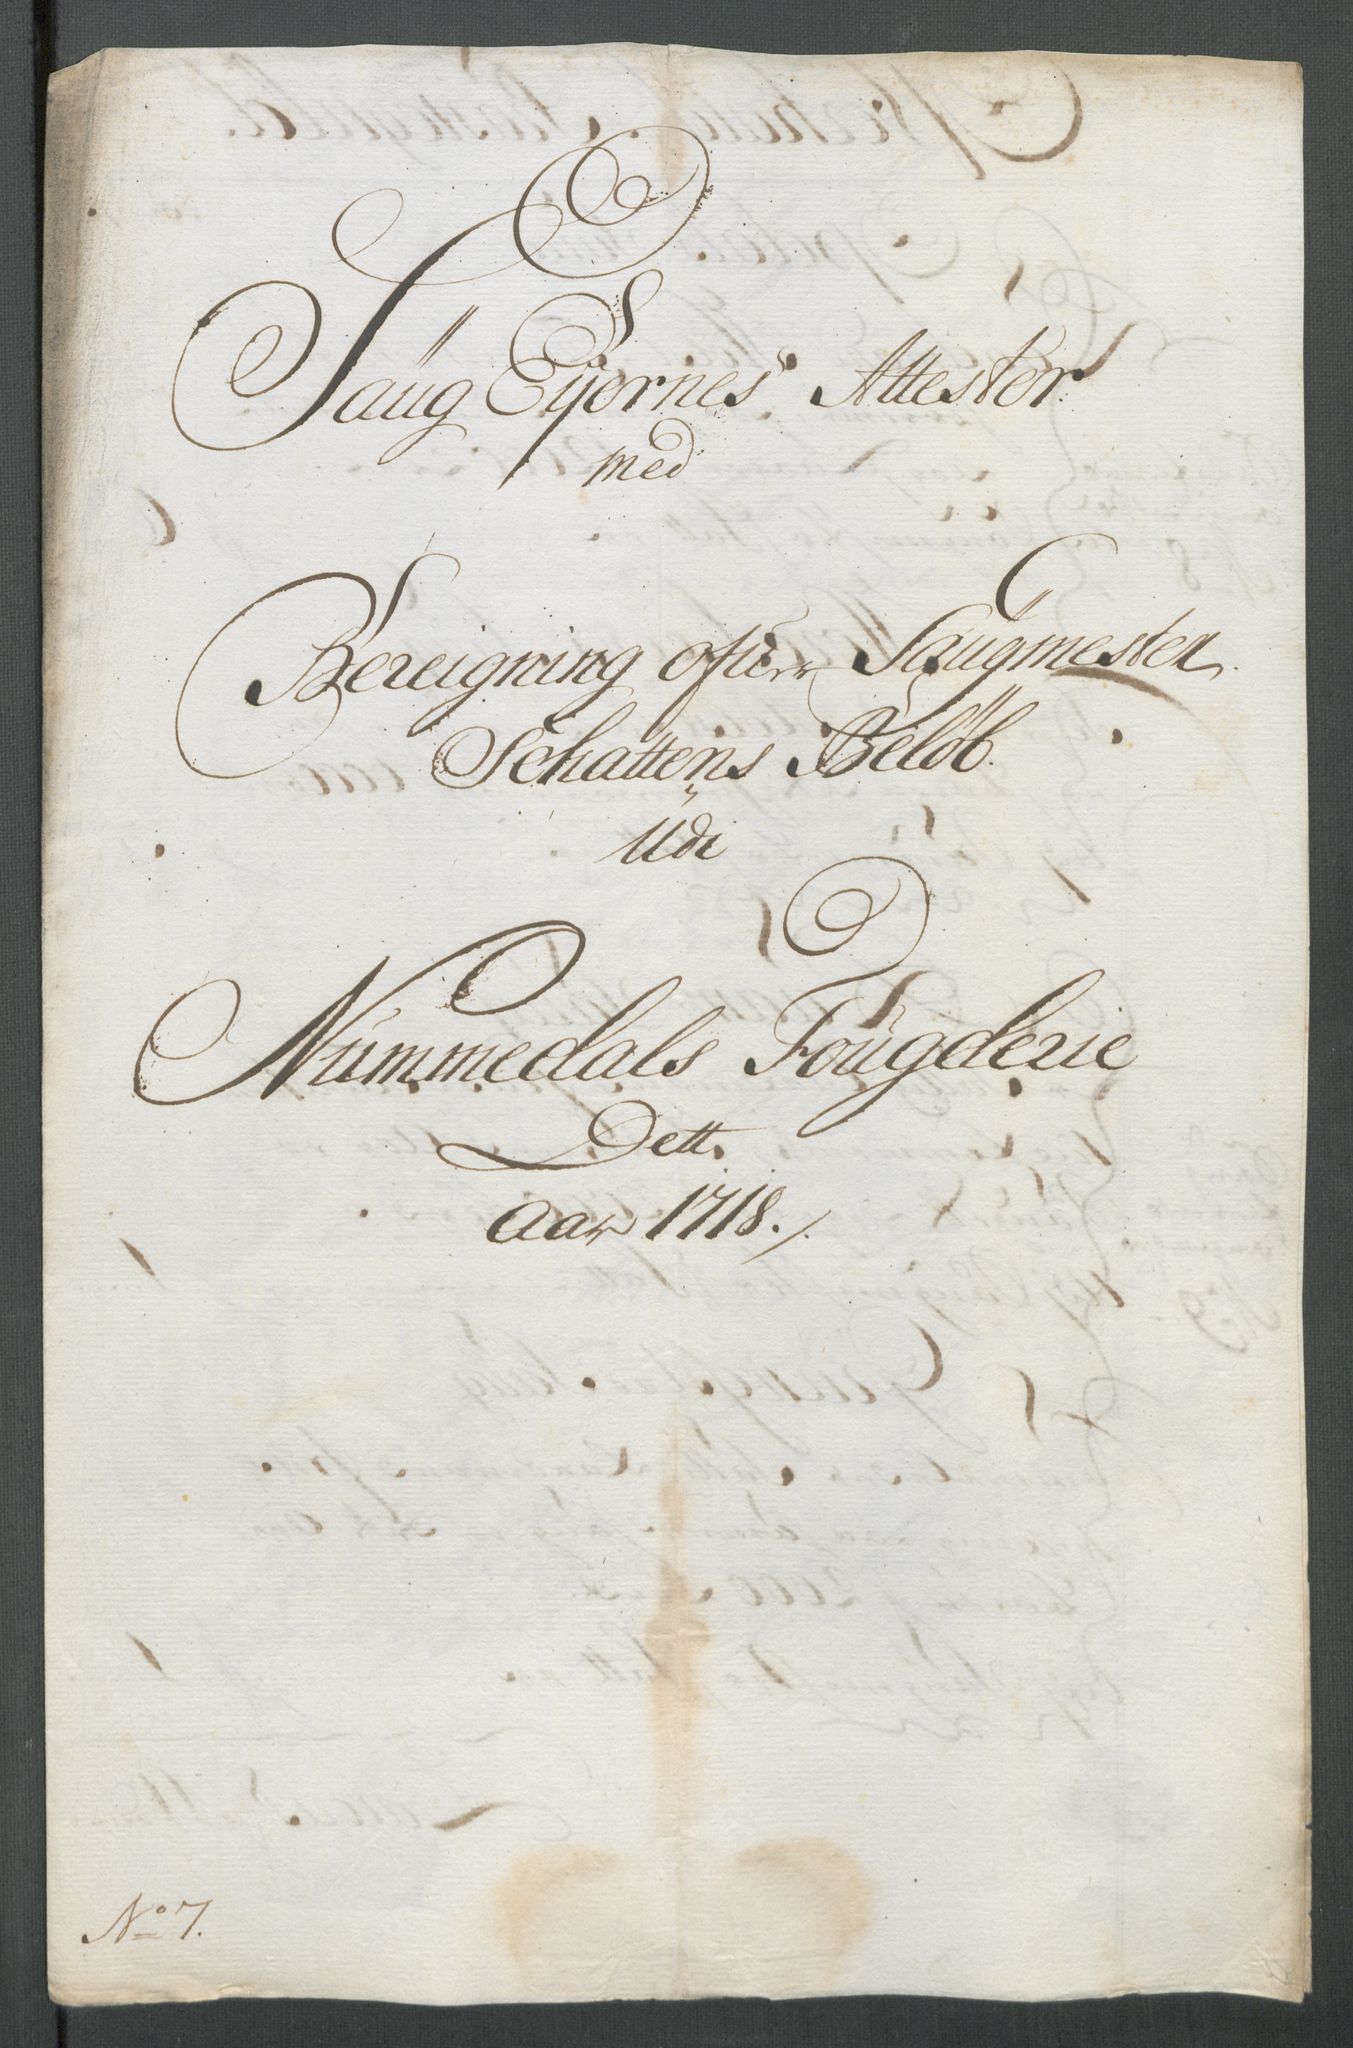 Saug Eÿernes Attester
med
Bereigning ofuer Saugmester
Schattens Belöb.
Udi
Nummedals Fougderie
Dett
Aar 1718./.
No 7.